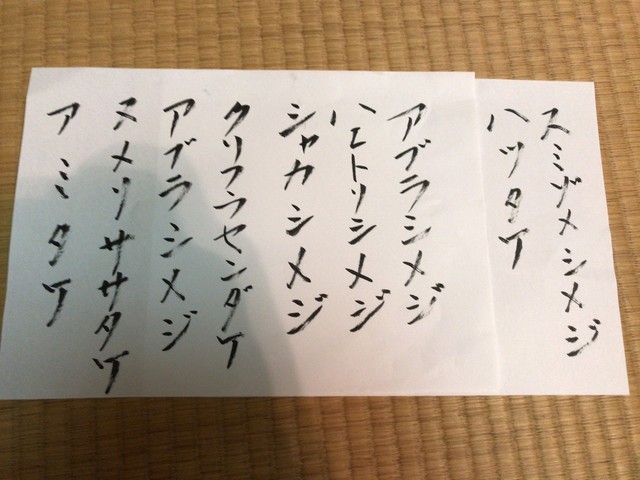 スミゾメシメジ
ハツタケ
アブラシメジ
ハエトリシメジ
シャカシメジ
クリフウセンタケ
アブラシメジ
ヌメリササタケ
アミタケ